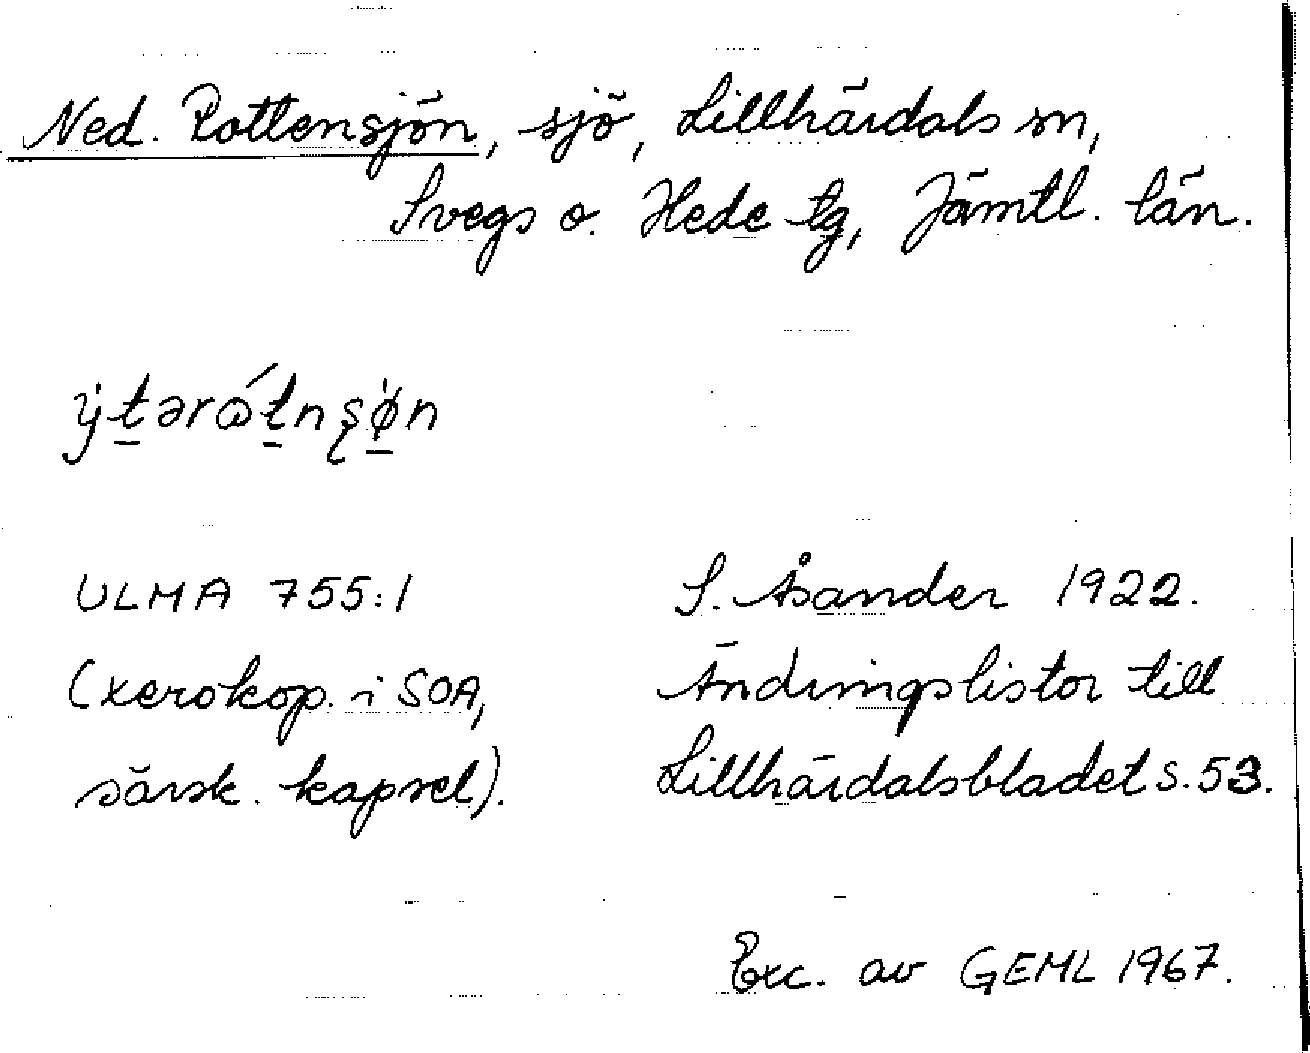 Ned. Rottensjön, sjö, Lillhärdals sn,
Svegs o. Hede tg, Jämtl. län.
ÿtərώtnʂøn
ULMA 755:1
(xerokop. i SOA,
särsk. kapsel).
S. Åsander 1922.
Ändringslistor till
Lillhärdalsbladet s. 53.
Exc. av GEML 1967.